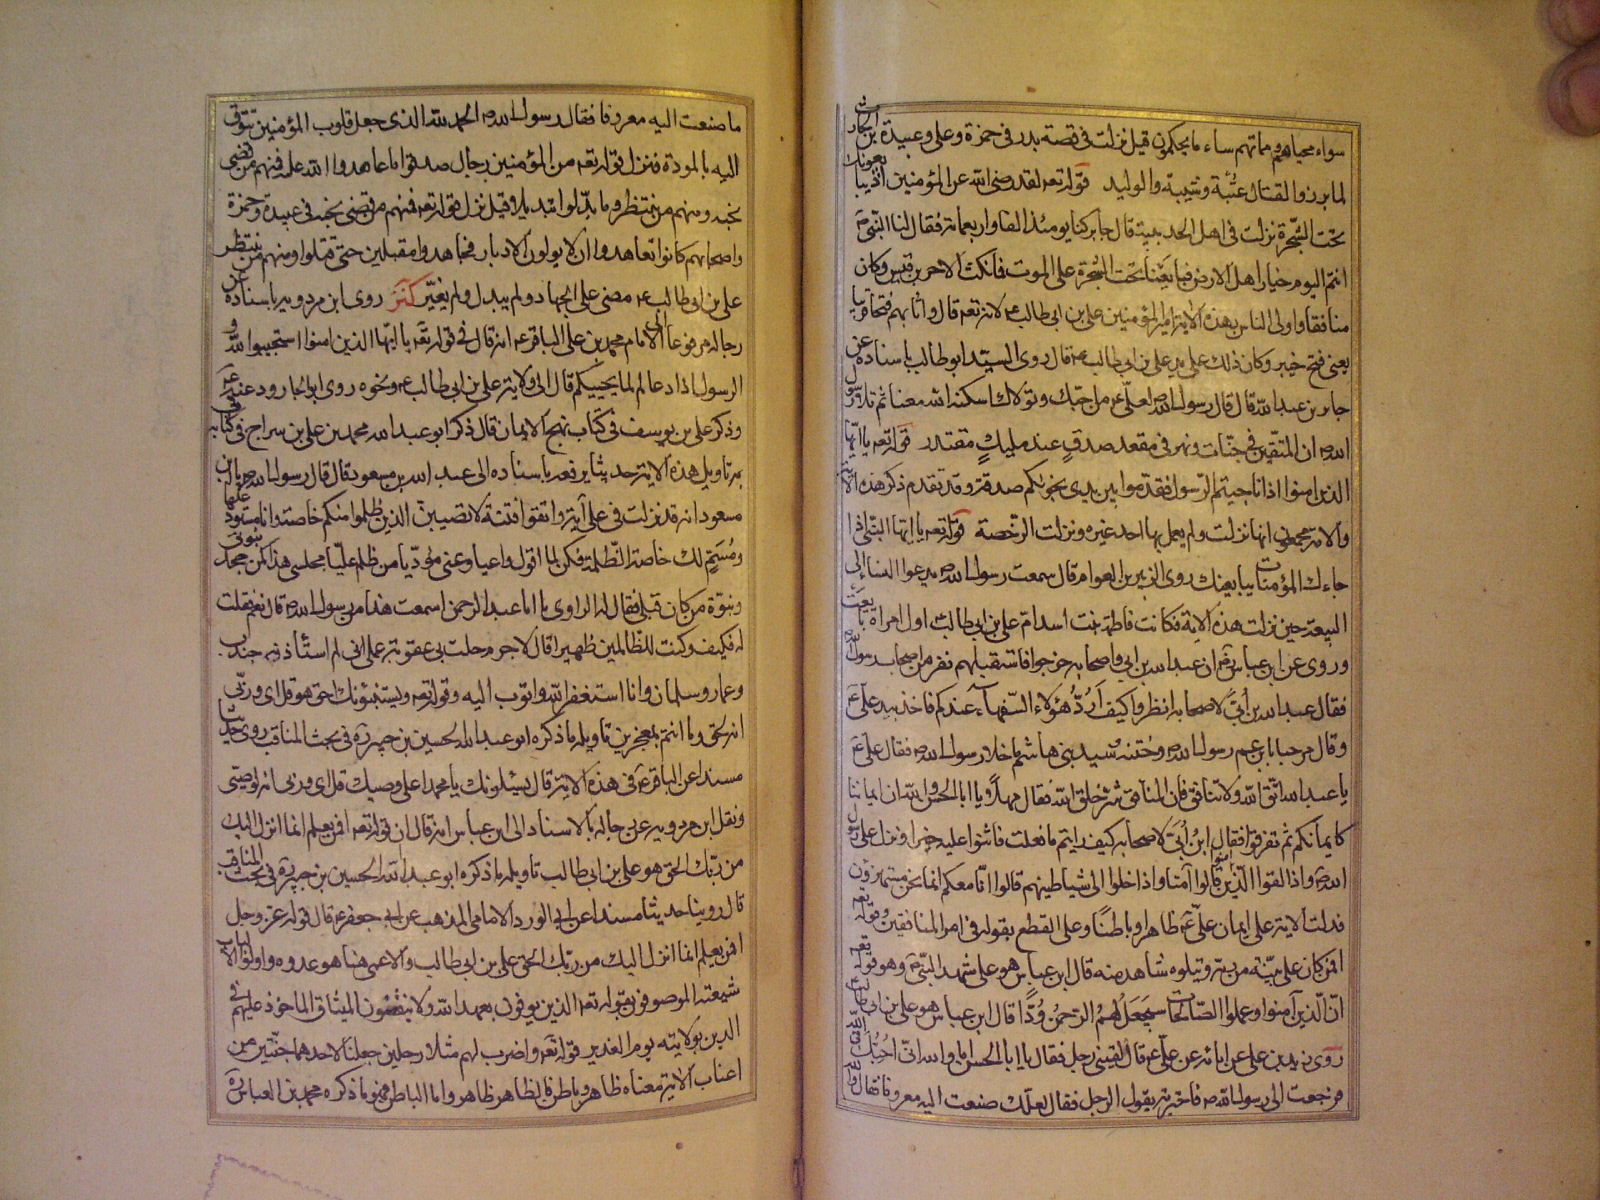 سواء محياهم ومماتهم ساء ما يحكمون قيل نزلت في قصة بدر في حمزة وعلي وعبيدة بن الحارث
لما برزوا لقتال عتبة وشيبة والوليد قوله تعه لقد رضي الله عن المؤمنين اذ يبايعونك
تحت الشجرة نزلت في اهل الحديبية قال جابر كنا يومئذ الفا واربعمائة فقال لنا النبي ص
انتم اليوم خيار اهل الارض فبايعنا تحت الشجرة على الموت فما نكث الا حر بن قيس وكان
منافقا واولى الناس بهذه الاية امير المؤمنين علي بن ابي طالب ع لانه تعه قال واثابهم فتحا قريبا
يعني فتح خيبر وكان ذلك على يد علي بن ابي طالب ع قال روى السيد ابو طالب باسناده عن
جابر بن عبد الله قال قال رسول الله ص لعلي ع من احبك وتولاك اسكنه الله معنا ثم تلا رسول
الله ص ان المتقين في جنات ونهر في مقعد صدق عند مليك مقتدر قوله تعه يا ايها
الذين امنوا اذا ناجيتم الرسول فقدموا بين يدي نجويكم صدقة وقد تقدم ذكر هذه الاية
والامة مجمعون انها نزلت ولم يعمل بها احد غيره ونزلت الرخصة قوله تعه يا ايها النبي اذا
جاءك المؤمنات يبايعنك روى الزبير بن العوام قال سمعت رسول الله ص يدعوا النساء الى
البيعة حين نزلت هذه الاية فكانت فاطمة بنت اسد ام علي بن ابي طالب اول امراة بايعت
وروى عن ابن عباس ان عبد الله بن ابي واصحابه خرجوا فاستقبلهم نفر من اصحاب رسول الله
فقال عبد الله بن ابي لاصحابه انظروا كيف ارد هؤلاء السفهاء عندكم فاخذ بيد علي ع
وقال مرحبا بابن عم رسول الله وختنه سيد بني هاشم ما خلا رسول الله ص فقال علي ع
يا عبد الله اتق الله ولا تنافق فان المنافق شر خلق الله فقال مهلا يا ابا الحسن والله ان ايماننا
كايمانكم ثم تفرقوا فقال ابن ابي لاصحابه كيف رايتم ما فعلت فاثنوا عليه خيرا ونزل على رسول
الله ص واذا لقوا الذين امنوا قالوا آمنا واذا خلوا الى شياطينهم قالوا انا معكم انما نحن مستهزؤن
فدلت الاية على ايمان علي ع ظاهرا وباطنا وعلى القطع بقوله في امر المنافقين وقوله تعه
افمن كان على بينة من ربه ويتلوه شاهد منه قال ابن عباس هو علي شهد النبي ع وهو قوله تعه
ان الذين آمنوا وعملوا الصالحات سيجعل لهم الرحمن ودا قال ابن عباس هو علي بن ابي طالب
روى زيد بن علي عن ابائه عن علي ع قال لقيني رجل فقال يا ابا الحسن اما والله اني احبك في الله
فرجعت الى رسول الله ص فاخبرته بقول الرجل فقال لعلك صنعت اليه معروفا فقال والله
ما صنعت اليه معروفا فقال رسول الله ص الحمد لله الذي جعل قلوب المؤمنين تتوق
اليه بالمودة فنزل قوله تعه من المؤمنين رجال صدقوا ما عاهدوا الله عليه فمنهم من قضى
نحبه ومنهم من ينتظر وما بدلوا تبديلا وقيل نزل قوله تعه فمنهم من قضى نحبه في عبيدة وحمزة
واصحابهم كانوا تعاهدوا ان لا يولون الادبار فجاهدوا مقبلين حتى قتلوا ومنهم من ينتظر
علي بن ابي طالب ع مضى على الجهاد ولم يبدل ولم يغير روى ابن مردويه باسناده عن
رجاله مرفوعا الى الامام محمد بن علي الباقر ع انه قال في قوله تعه يا ايها الذين امنوا استجيبوا لله و
الرسول اذا دعاكم لما يحييكم قال الى ولاية علي بن ابي طالب ع ونحوه روى ابو الجارود عنه ع
وذكر علي بن يوسف في كتاب نهج الايمان قال ذكر ابو عبد الله محمد بن علي بن سراج في كتابه في
تاويل هذه الاية حديثا يرفعه باسناده الى عبد الله بن مسعود قال قال رسول الله ص يا ابن
مسعود انه قد نزلت في علي آية واتقوا فتنة لا تصيبن الذين ظلموا منكم خاصة وانا مستودعكها
ومسم لك خاصة الظلمة فكن لما اقول واعيا وعني مؤديا من ظلم عليا مجلسي هذا كمن جحد نبوتي
ونبوة من كان قبلي فقال له الراوي يا ابا عبد الرحمن اسمعت هذا من رسول الله ص قال نعم فقلت
له فكيف وكنت للظالمين ظهيرا قال لا جرم حلت بي عقوبة علي اني لم استأذنه جندب
وعمار وسلمان وانا استغفر الله واتوب اليه وقوله تعه ويستنبؤنك احق هو قل اي وربي
انه لحق وما انتم بمعجزين تاويله ما ذكره ابو عبد الله الحسين بن جبير ره في نخب المناقب روى حديثا
مسندا عن الباقر ع في هذه الاية قال يسئلونك يا محمد اعلي وصيك قل اي وربي انه لوصيي
ونقل ابن مردويه عن رجاله بالاسناد الى ابن عباس انه قال ان قوله تعه افمن يعلم انما انزل اليك
من ربك الحق هو علي بن ابي طالب تاويله ما ذكره ابو عبد الله الحسين بن جبير ره في نخب المناقب
قال روينا حديثا مسندا عن ابي الورد الامامي المذهب عن ابي جعفر ع قال قوله عز وجل
افمن يعلم انما انزل اليك من ربك الحق علي بن ابي طالب والاعمى هنا هو عدوه واولوا الالباب
شيعته الموصوفون بقوله تعه الذين يوفون بعهد الله ولا ينقضون الميثاق الماخوذ عليهم في
الدين بولايته يوم الغدير قوله تعه واضرب لهم مثلا رجلين جعلنا لاحدهما جنتين من
اعناب الاية معناه ظاهر وباطن فالظاهر ظاهر واما الباطن فهو ما ذكره محمد بن العباس ره